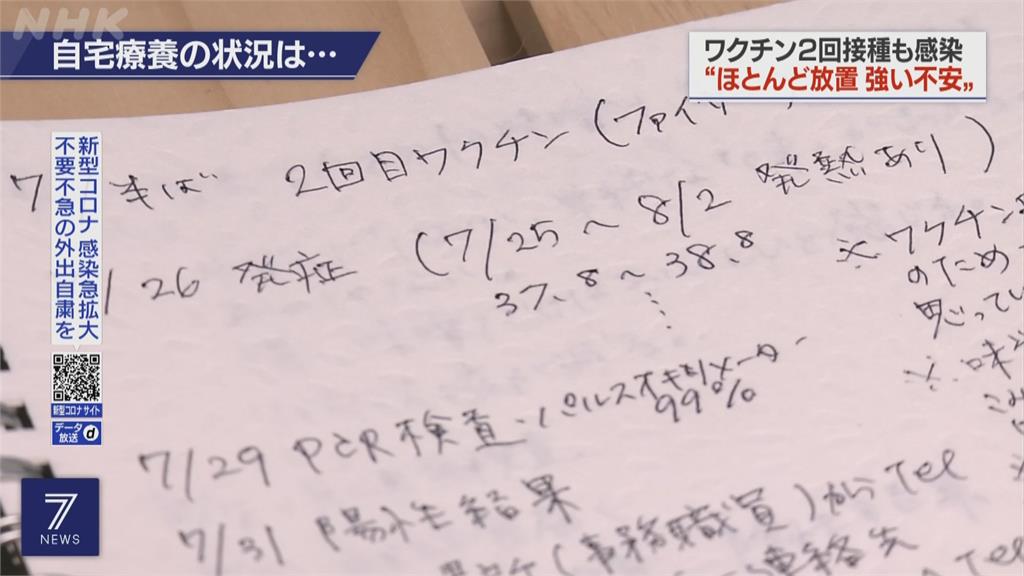 NHK
自宅療養の状況は…
ワクチン2回接種も感染
“ほとんど放置 強い不安„
新型コロナ 感染急拡大
不要不急の外出自粛を
新型コロナサイト
データ
放送 d
7
NEWS
7 半ば 2回目ワクチン(ファイザー
/26 発症 (7/25～8/2 発熱あり)
37.8～38.8
※ワクチン
のため
思ってい
※味
7/29 PCR検査・パルスオキシメーター
99%
7/31 陽性結果
(事務職員)からTel
連絡先